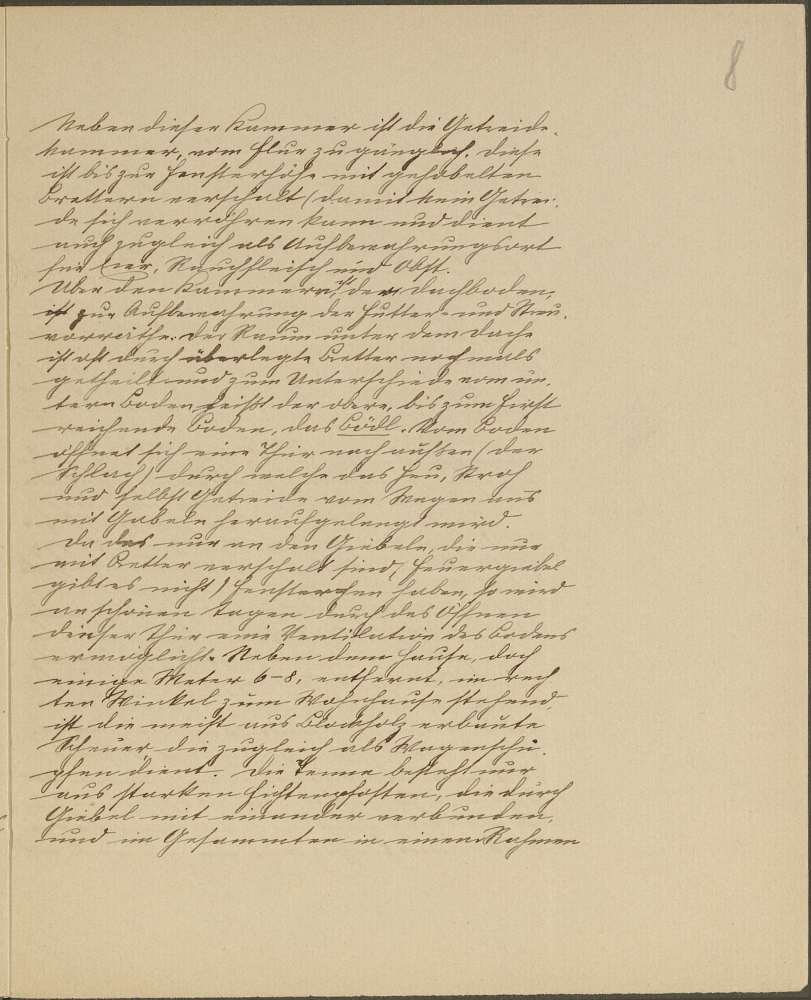 8
Neben dieser Kammer ist die Getreide-
kammer, vom Flur zugänglich. Diese
ist bis zur Fensterhöhe mit gehobelten
Brettern verschalt (damit kein Getrei-
de sich verröhren kann und dient
auch zugleich als Aufbewahrungsort
für Eier, Rauchfleisch und Obst.
Über den Kammern ist der Dachboden,
ist zur Aufbewahrung der Futter- und Streu-
vorräthe. Der Raum unter dem Dache
ist oft durch überlegte Bretter nochmals
getheilt und zum Unterschiede vom un-
tern Boden heißt der obere, bis zum First
reichende Boden, das Bödl. Vom Boden
öffnet sich eine Thür nach außen (der
Schlach) durch welche das Heu, Stroh
und selbst Getreide vom Wagen aus
mit Gabeln heraufgelangt wird.
Da das nur an den Giebeln, die nur
mit Bretter verschalt sind, Feuergiebel
gibt es nicht) Fensterchen haben, so wird
an schönen Tagen durch das Öffnen
dieser Thür eine Ventilation des Bodens
ermöglicht. Neben dem Hause, doch
einige Meter 6-8, entfernt, im rech
ten Winkel zum Wohnhause stehend,
ist die meist aus Blockholz erbaute
Scheuer die zugleich als Wagenschu-
pfen dient. Die Tenne besteht nur
aus starken Fichtenpfosten, die durch
Giebel mit einander verbunden,
und im Gesammten in einen Rahmen